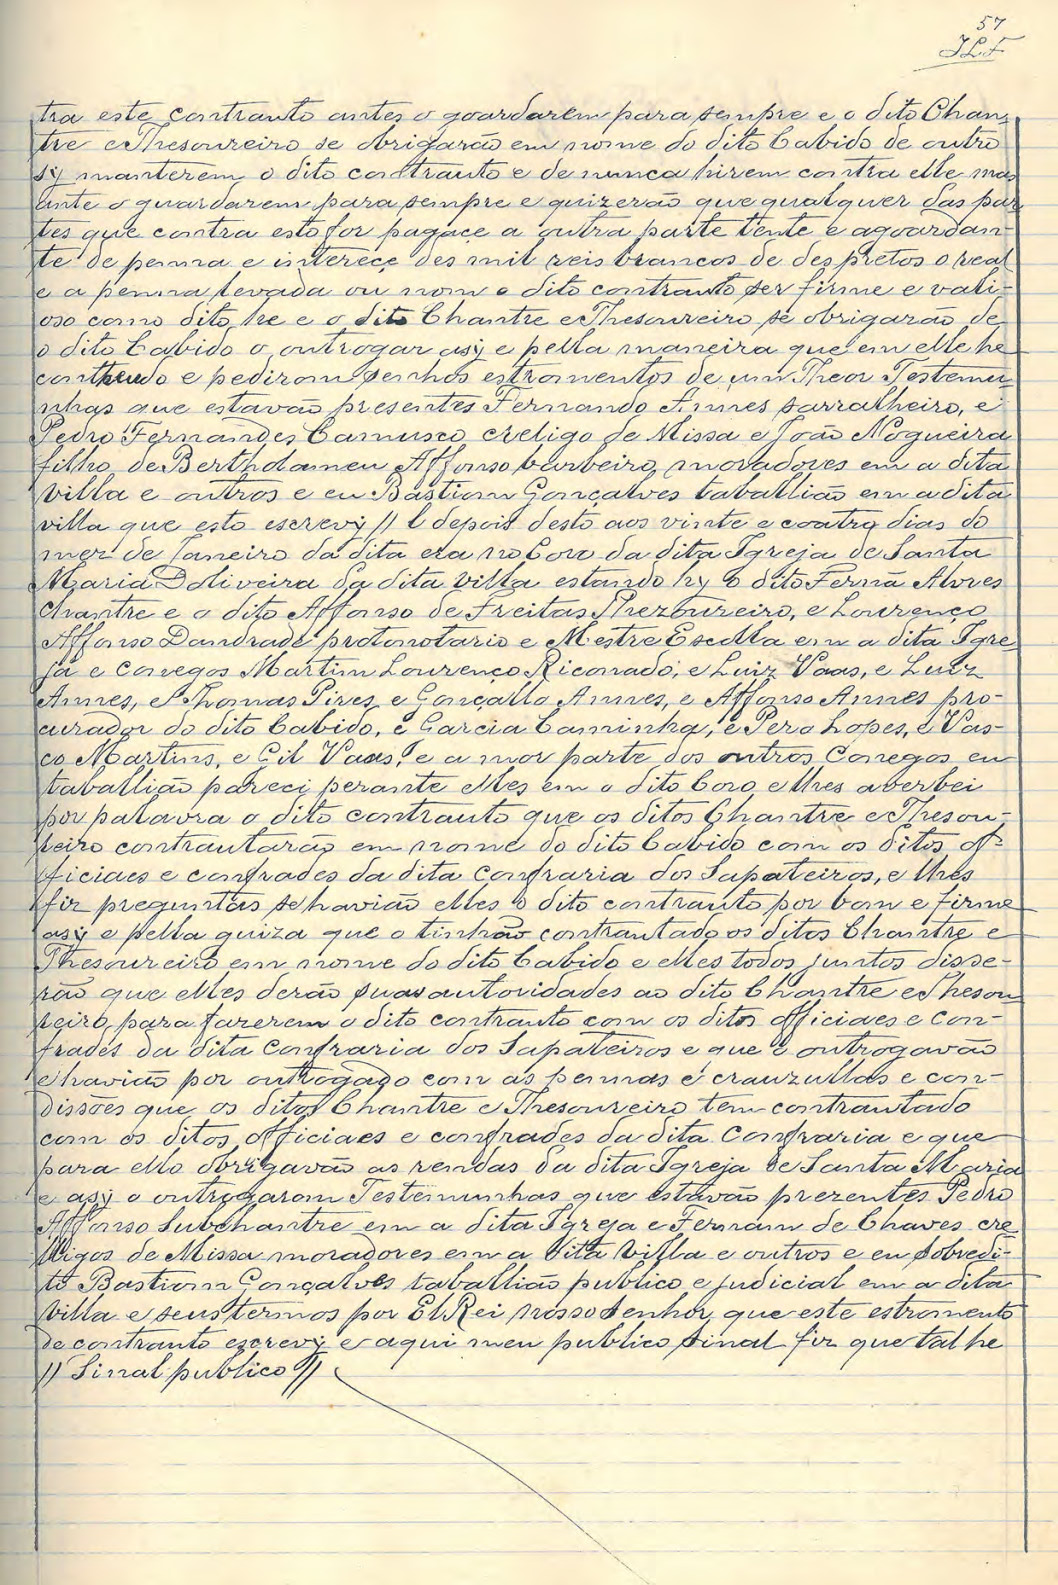 57
JLF
tra este contrauto antes o goardarem para sempre e o dito Chan-
tre e Thesoureiro se obrigarão em nome do dito Cabido de outro
sy manterem o dito contrauto e de nunca hirem contra elle mas
ante o guardarem para sempre e quizerão que qualquer das par
tes que contra esto for pagace a outra parte tente e agoardan-
te de penna e interece des mil reis brancos de des pretos o real
e a penna levada ou nom o dito contrauto ser firme e vali-
oso como dito he e o dito Chantre e Thesoureiro se obrigarão de
o dito Cabido o outrogar asy e pella maneira que em elle he
contheudo e pedirom senhos estromentos de um Theor Testemu-
nhas que estavão presentes Fernando Annes sarralheiro, e
Pedro Fernandes Camusco, creligo de Missa e João Nogueira
filho de Bertholameu Affonso barbeiro, moradores em a dita
villa e outros e eu Bastiom Gonçalves taballião em a dita
villa que esto escrevy // E depois desto aos vinte e coatro dias do
mez de Janeiro da dita era no Coro da dita Igreja de Santa
Maria Doliveira da dita villa estando hy o dito Fernã Alvres
Chantre e o dito Affonso de Freitas Thezoureiro, e Lourenço
Affonso Dandrade protonotario e Mestre Escolla em a dita Igre
ja e Conegos Martim Lourenço Riconado, e Luiz Vaas, e Luiz
Annes, e Thomas Pires, e Gonçallo Annes, e Affonso Annes pro-
curador do dito Cabido, e Garcia Caminha, e Pero Lopes, e Vas-
co Martins, e Gil Vaas, e a mor parte dos outros Conegos eu
taballião pareci perante elles em o dito Coro, e lhes averbei
por palavra o dito contrauto que os ditos Chantre e Thesou-
reiro contrautarão em nome do dito Cabido com os ditos of-
ficiaes e confrades da dita Confraria dos Sapateiros, e lhes
fiz preguntas se havião elles o dito contrauto por bom e firme
asy e pella guiza que o tinhão contrautado os ditos Chantre e
Thesoureiro em nome do dito Cabido e elles todos juntos disse-
rão que elles derão suas autoridades ao dito Chantre e Thesou
reiro, para fazerem o dito contrauto com os ditos officiaes e con-
frades da dita Confraria dos Sapateiros e que o outrogavão
e havião por outrogado com as pennas e crauzullas e con-
dissões que os ditos Chantre e Thesoureiro tem contrautado
com os ditos officiaes e confrades da dita Confraria e que
para ello obrigavão as rendas da dita Igreja de Santa Maria
e asy o outrogarom Testemunhas que estavão prezentes Pedro
Affonso Subchantre em a dita Igreja e Fernam de Chaves cre
lligos de Missa moradores em a dita villa e outros e eu sobredi-
to Bastiom Gonçalves taballião publico e judicial em a dita
villa e seus termos por El Rei nosso Senhor que este estromento
de contrauto escrevy e aqui meu publico sinal fiz que tal he
// Sinal publico //